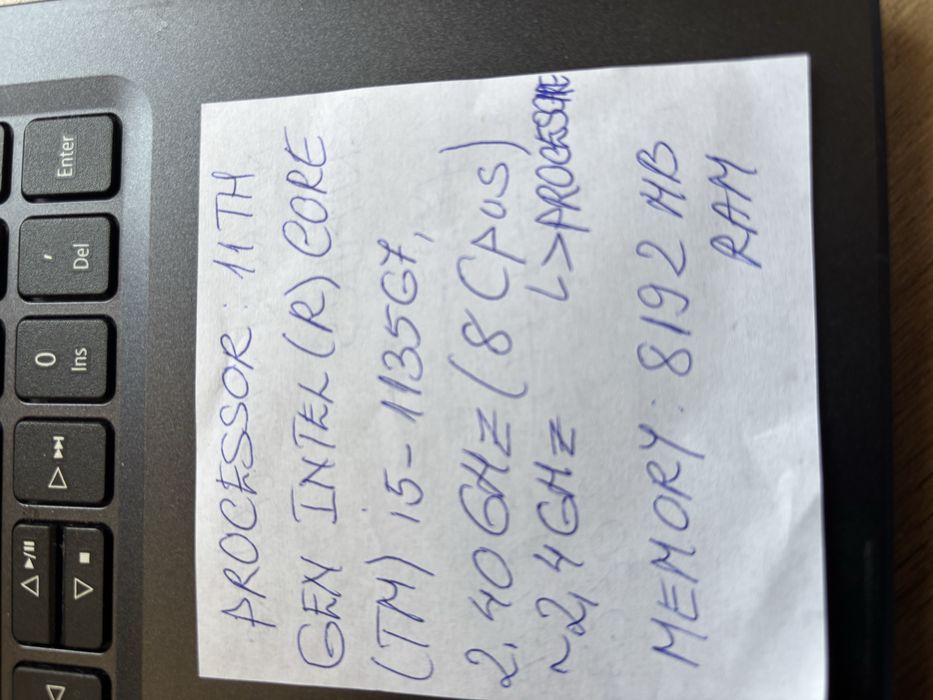 PROCESSOR: 11TH
GEN INTEL(R) CORE
(TM) i5-1135G7,
2.40GHz (8 CPUS)
~2,4GHz ↳>PROCESOARE
MEMORY: 8192 MB
RAM
Enter
,
Del
0
Ins